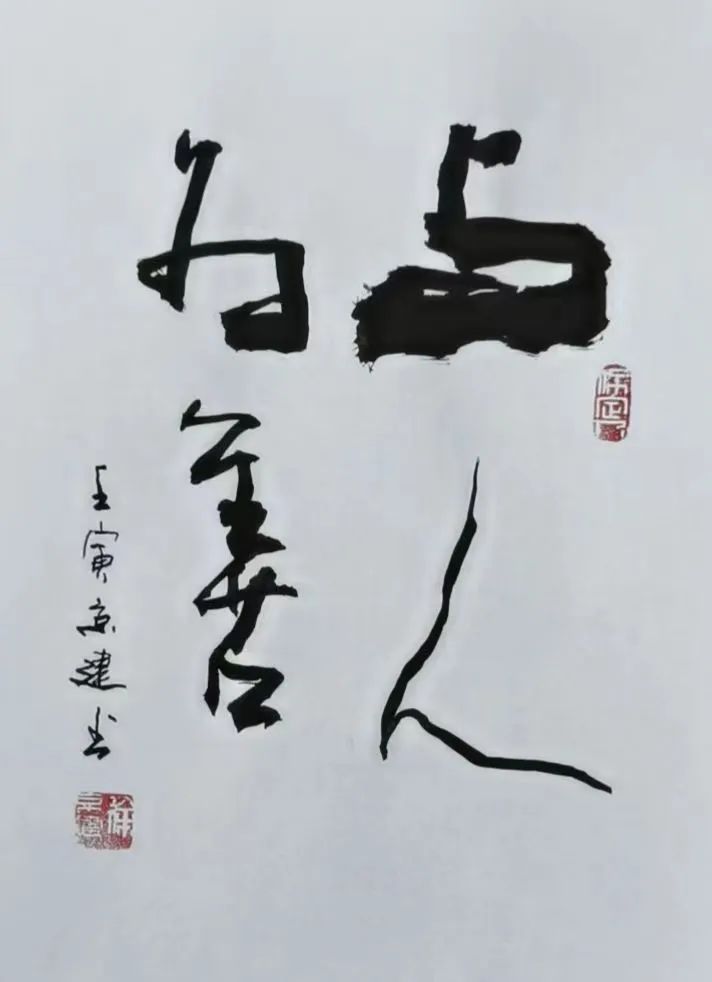 与人
为善
壬寅京建书